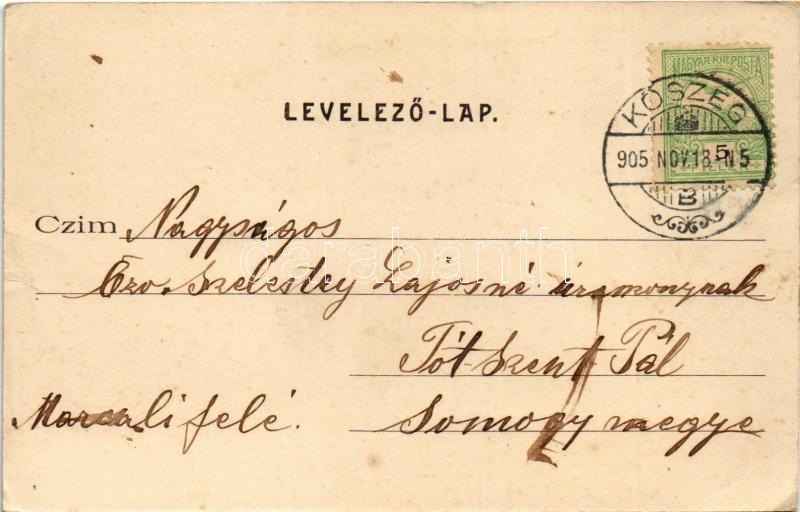 MAGYAR KIR. POSTA
LEVELEZŐ-LAP.
KŐSZEG
905 NOV. 18. N5
B
5
Czim Nagyságos
Özv. Szelestey Lajosné úrasszonynak
Tót-Szent Pál
Marcali felé. Somogy megye
darabanth